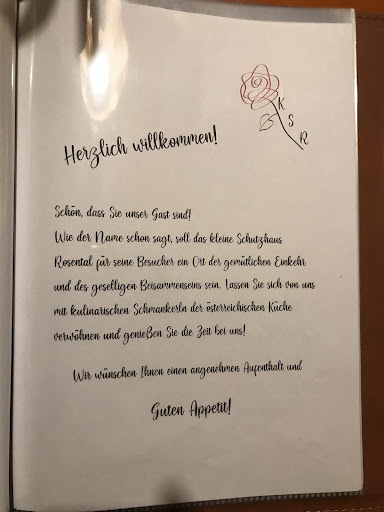 K
S
R
Herzlich willkommen!
Schön, dass Sie unser Gast sind!
Wie der Name schon sagt, soll das kleine Schutzhaus
Rosental für seine Besucher ein Ort der gemütlichen Einkehr
und des geselligen Beisammenseins sein. Lassen Sie sich von uns
mit kulinarischen Schmankerln der österreichischen Küche
verwöhnen und genießen Sie die Zeit bei uns!
Wir wünschen Ihnen einen angenehmen Aufenthalt und
Guten Appetit!